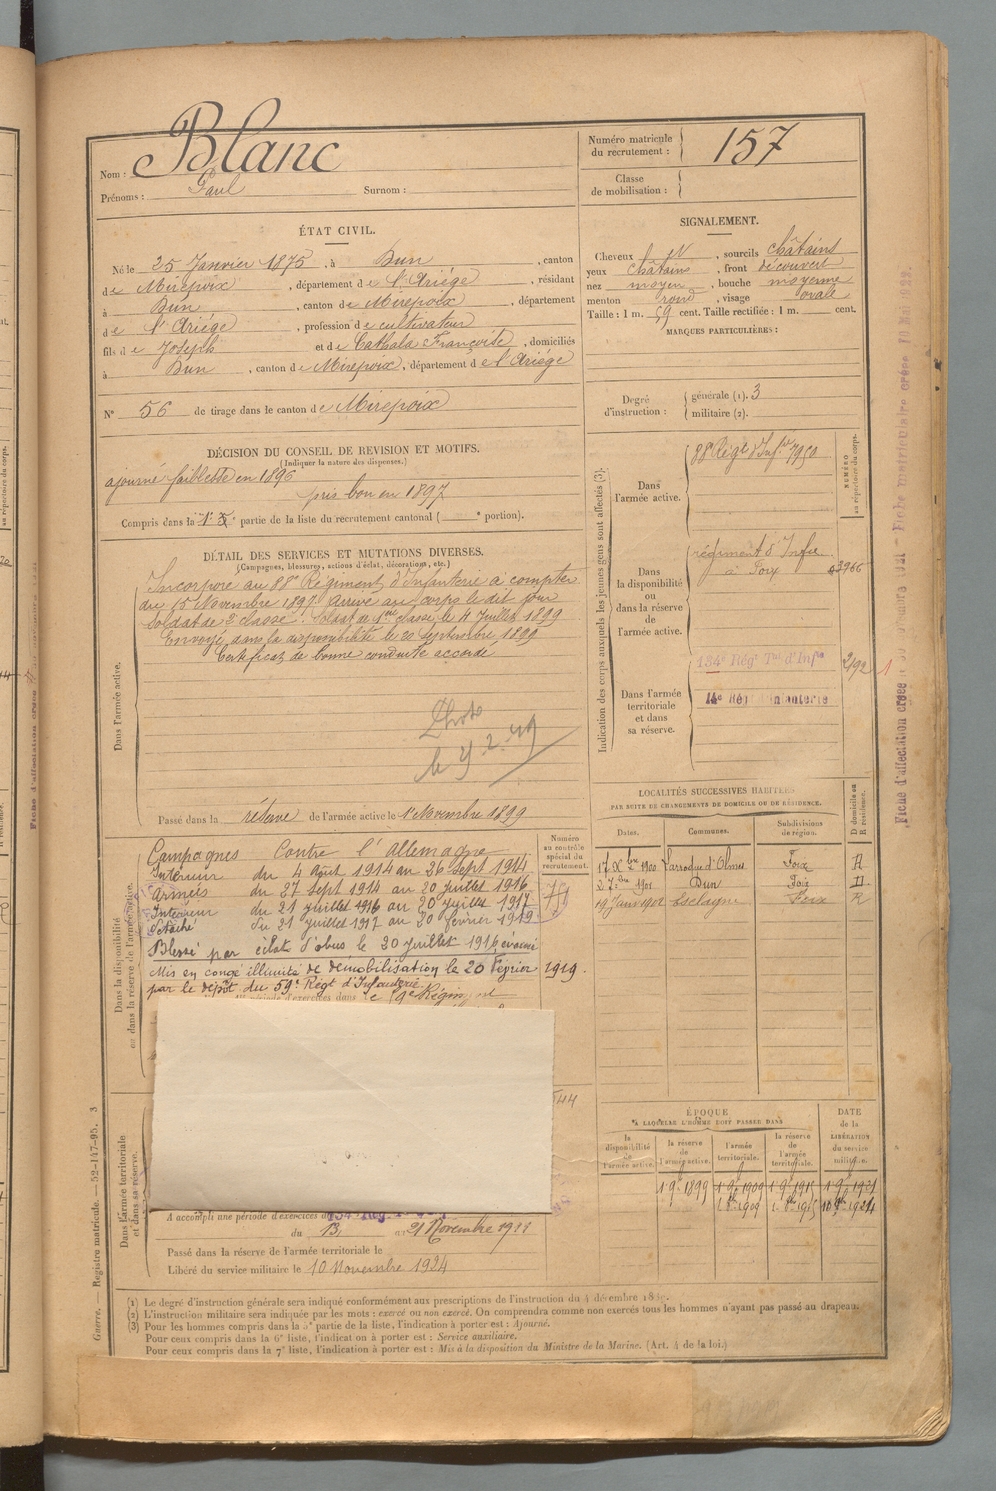 Nom : Blanc
Prénoms : Paul Surnom :
Numéro matricule du recrutement : 157
Classe de mobilisation :
ÉTAT CIVIL.
Né le 25 Janvier 1875, à Dun, canton
de Mirepoix, département de l'Ariège, résidant
à Dun, canton de Mirepoix, département
de l'Ariège, profession de cultivateur
fils de Joseph et de Cathala Françoise, domiciliés
à Dun, canton de Mirepoix, département de l'Ariège
N° 56 de tirage dans le canton de Mirepoix
SIGNALEMENT.
Cheveux N, sourcils châtains
yeux châtains, front découvert
nez moyen, bouche moyenne
menton rond, visage ovale
Taille : 1 m. 59 cent. Taille rectifiée : 1 m. cent.
MARQUES PARTICULIÈRES :
Degré d'instruction : générale (1). 3
militaire (2).
DÉCISION DU CONSEIL DE REVISION ET MOTIFS.
(Indiquer la nature des dispenses.)
ajourné faiblesse en 1896
pris bon en 1897
Compris dans la 1e partie de la liste du recrutement cantonal ( e portion).
DÉTAIL DES SERVICES ET MUTATIONS DIVERSES.
(Campagnes, blessures, actions d'éclat, décorations, etc.)
Dans l'armée active.
Incorporé au 88e Régiment d'Infanterie à compter
du 15 Novembre 1897 arrivé au corps le dit jour
soldat de 2e classe. Soldat de 1ère classe le 4 Juillet 1899
Envoyé dans la disponibilité le 20 Septembre 1899
Certificat de bonne conduite accordé
le 9-2-49
Passé dans la réserve de l'armée active le 1er Novembre 1899
Indication des corps auxquels les jeunes gens sont affectés (3).
NUMÉRO au répertoire du corps.
Dans l'armée active.
88e Régt d'Infrie 7950
Dans la disponibilité ou dans la réserve de l'armée active.
régiment d'Infie
à Foix 03966
Dans l'armée territoriale et dans sa réserve.
134e Régt Tal d'Infie 2192
14e Régt Infanterie
Fiche matriculaire créée 10 Mai 1922
Fiche d'affectation créée
LOCALITÉS SUCCESSIVES HABITÉES
PAR SUITE DE CHANGEMENTS DE DOMICILE OU DE RÉSIDENCE.
Dates. Communes. Subdivisions de région. D domicile ou R résidence.
17 Xbre 1900 Larroque d'Olmes Foix R
27bre 1901 Dun Foix D
19 Janv 1902 Esclagne Foix R
Dans la disponibilité ou dans la réserve de l'armée active.
Numéro au contrôle spécial du recrutement.
Campagnes Contre l'Allemagne
Intérieur du 4 Août 1914 au 26 Sept 1914
Armées du 27 Sept 1914 au 20 juillet 1916
Intérieur du 21 juillet 1916 au 20 juillet 1917
Détaché du 21 juillet 1917 au 20 février 1919
Blessé par éclat d'obus le 20 juillet 1916, évacué
Mis en congé illimité de démobilisation le 20 Février 1919.
par le dépôt du 59e Régt d'Infanterie
544
Dans l'armée territoriale et dans sa réserve.
A accompli une période d'exercices d 134e Rég
du 13 au 21 Novembre 1911
Passé dans la réserve de l'armée territoriale le
Libéré du service militaire le 10 Novembre 1924
ÉPOQUE
A LAQUELLE L'HOMME DOIT PASSER DANS
la disponibilité de l'armée active. la réserve de l'armée active. l'armée territoriale. la réserve de l'armée territoriale. DATE de la LIBÉRATION du service militaire.
1 9bre 1899 1 9bre 1909 1 9bre 1915 1 9bre 1921
1 8bre 1909 1 8bre 1915 10 9bre 1924
(1) Le degré d'instruction générale sera indiqué conformément aux prescriptions de l'instruction du 4 décembre 1889.
(2) L'instruction militaire sera indiquée par les mots : exercé ou non exercé. On comprendra comme non exercés tous les hommes n'ayant pas passé au drapeau.
(3) Pour les hommes compris dans la 5e partie de la liste, l'indication à porter est : Ajourné.
Pour ceux compris dans la 6e liste, l'indication à porter est : Service auxiliaire.
Pour ceux compris dans la 7e liste, l'indication à porter est : Mis à la disposition du Ministre de la Marine. (Art. 4 de la loi.)
Guerre. — Registre matricule. — 52-147-95. 3